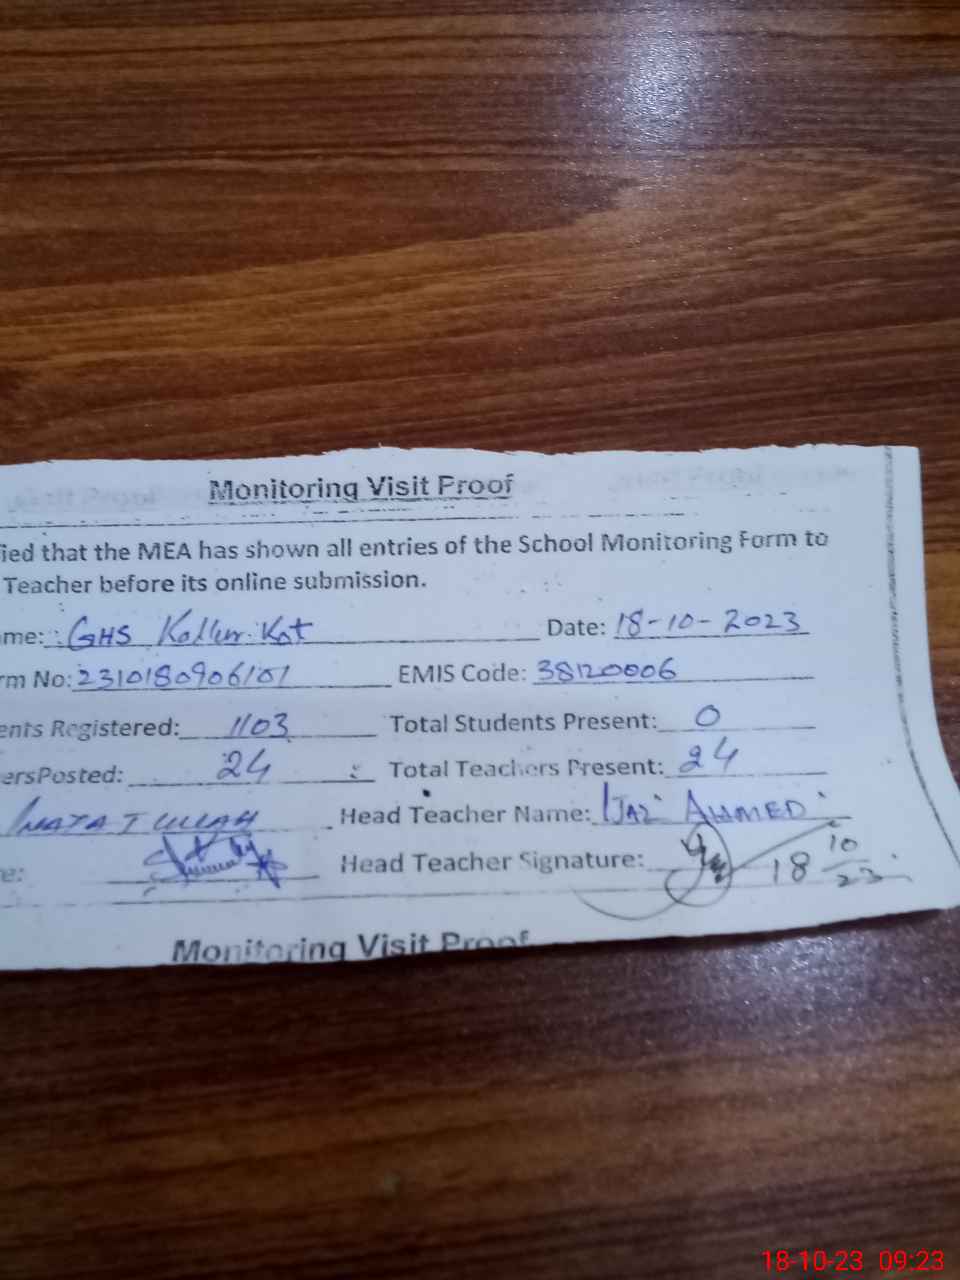 Monitoring Visit Proof
fied that the MEA has shown all entries of the School Monitoring Form to
Teacher before its online submission.
me: GHS Kallur Kot Date: 18-10-2023
rm No: 2310180906101 EMIS Code: 38120006
ents Registered: 1103 Total Students Present: 0
ersPosted: 24 Total Teachers Present: 24
Head Teacher Name: IJAZ AHMED
e: Head Teacher Signature: 18 10 23
Monitoring Visit Proof
18-10-23 09:23